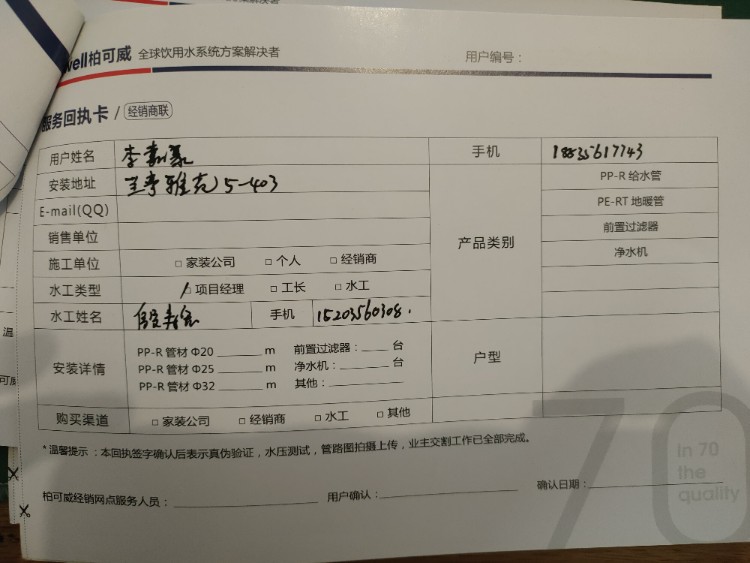 well柏可威 全球饮用水系统方案解决者 用户编号：
服务回执卡 / 经销商联
用户姓名 李 手机 18835617743
安装地址 兰亭雅克5-403 PP-R 给水管
E-mail(QQ) PE-RT 地暖管
销售单位 产品类别 前置过滤器
施工单位 □ 家装公司 □ 个人 □ 经销商 净水机
水工类型 □ 项目经理 □ 工长 □ 水工
水工姓名 手机 15203560308.
安装详情 户型
PP-R 管材 Φ20 ______ m 前置过滤器：____ 台
PP-R 管材 Φ25 ______ m 净水机：____ 台
PP-R 管材 Φ32 ______ m 其他：______
购买渠道 □ 家装公司 □ 经销商 □ 水工 □ 其他
*温馨提示：本回执签字确认后表示真伪验证，水压测试，管路图拍摄上传，业主交割工作已全部完成。
柏可威经销网点服务人员：______ 用户确认：______ 确认日期：______
70
In 70
the
quality